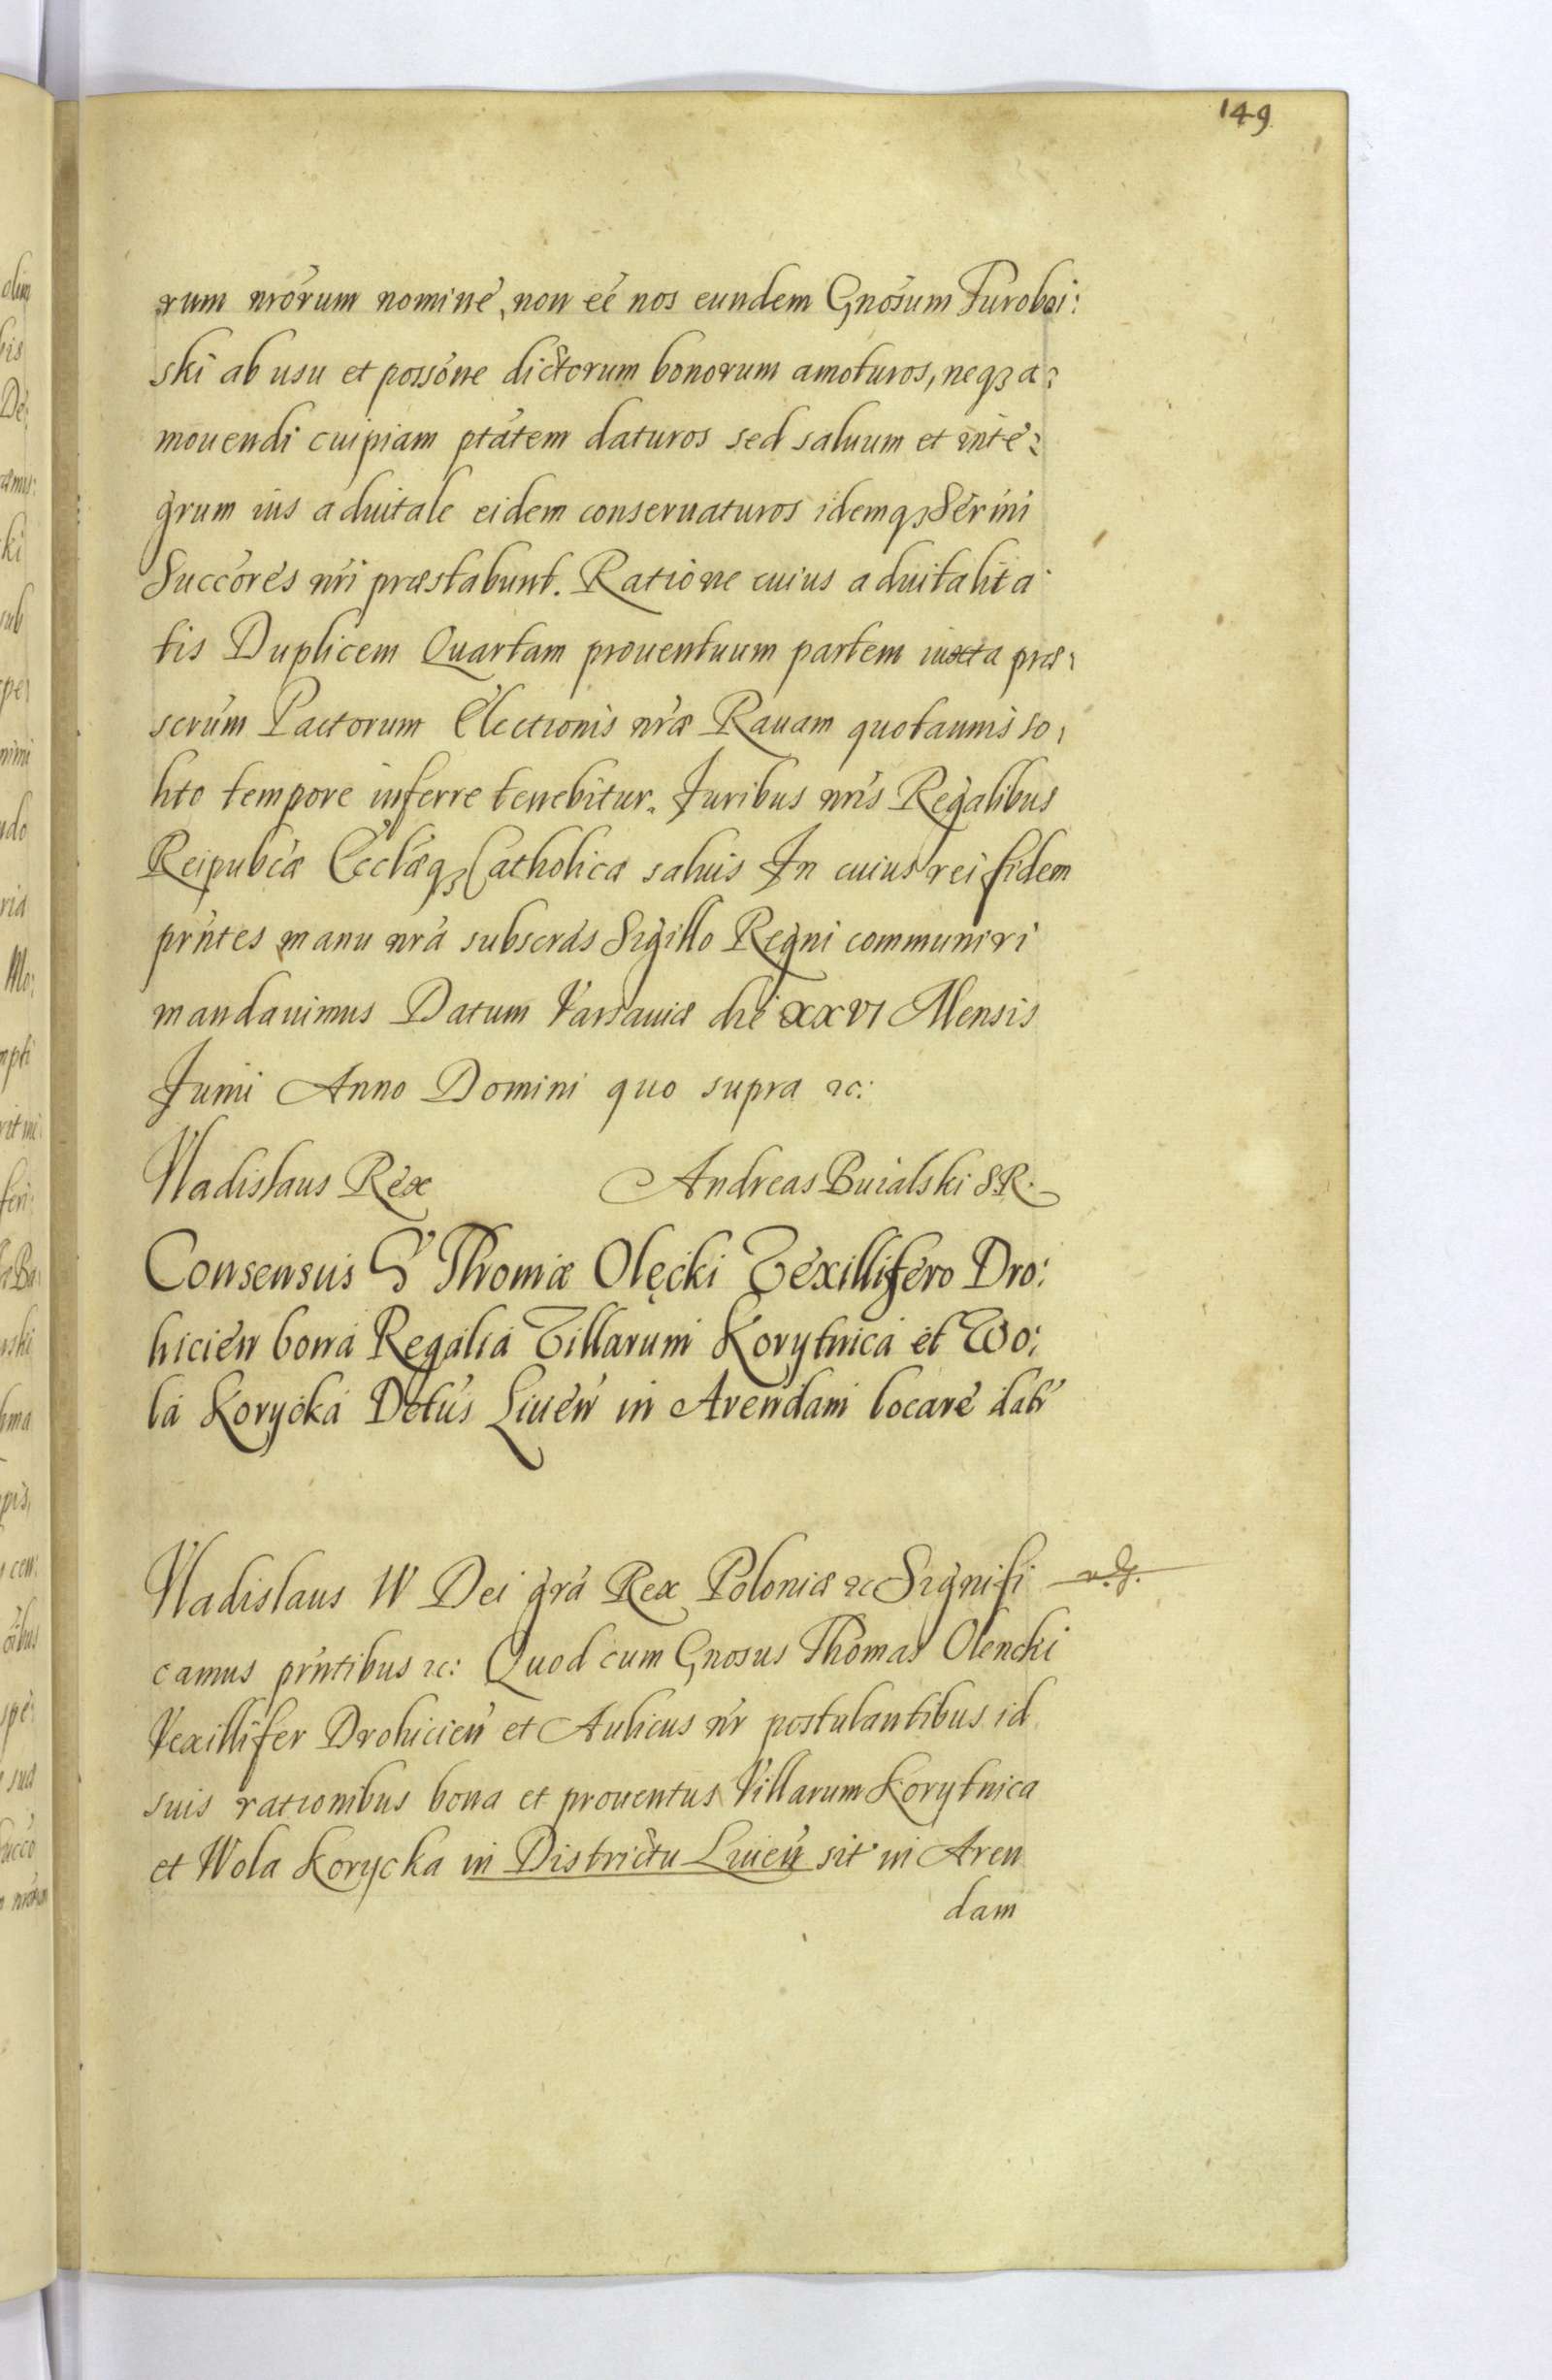 149
rum nrórum nominé, non eé nos eundem Gnósum Turoboi:
ski ab usu et possóne dictorum bonorum amoturos, neqȝ a:
mouendi cuipiam ptátem daturos sed saluum et inte:
grum ius aduitale eidem conseruaturos idemqȝ Sérmi
Succóres nri præstabunt. Ratione cuius aduitalita
tis Duplicem Quartam prouentuum partem iuxta præ:
scrúm Pactorum Electionis nræ Rauam quotannis so:
lito tempore inferre tenebitur. Juribus nris Regalibus
Reipubcæ Ecclæqȝ Catholicæ saluis In cuius rei fidem
prntes manu nrá subscrás Sigillo Regni communiri
mandauimus Datum Varsauiæ die XXVI Mensis
Junii Anno Domini quo supra ꝛc:
Vladislaus Rex Andreas Buialski SR.
Consensus G Thomæ Olęcki Vexillifero Dro:
hicien bona Regalia Villarum Korytnica et Wo:
la Korycka Dctús Liuen in Arendam locare datr
Vladislaus IV Dei grá Rex Poloniæ ꝛc Signifi
camus prntibus ꝛc: Quod cum Gnosus Thomas Olencki
Vexillifer Drohicien et Aulicus nr postulantibus id
suis rationibus bona et prouentus Villarum Korytnica
et Wola Korycka in Districtu Liuen sit in Aren
dam